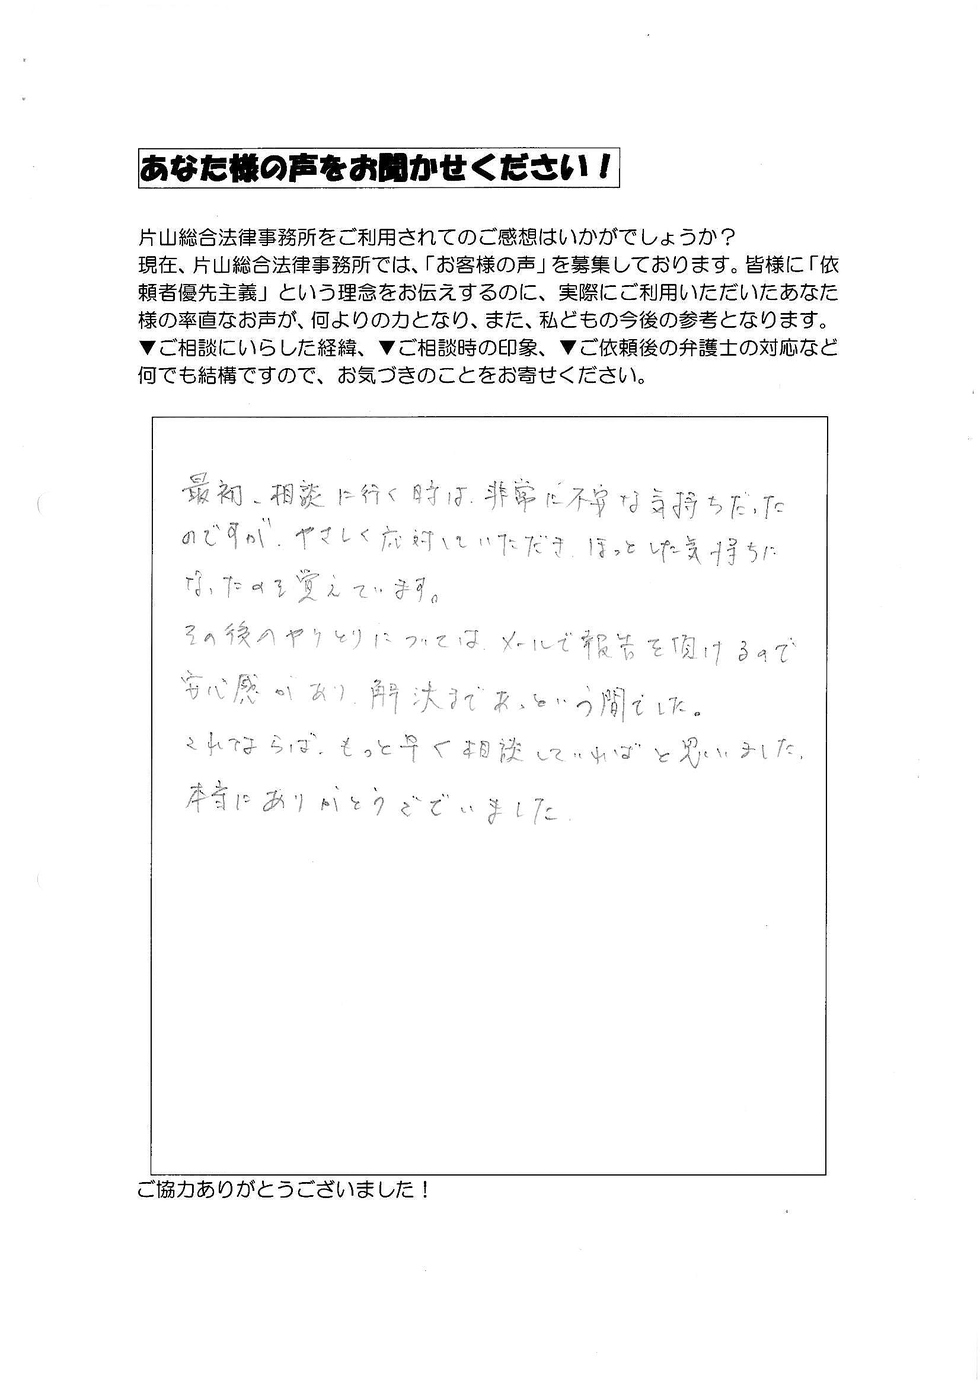 あなた様の声をお聞かせください！
片山総合法律事務所をご利用されてのご感想はいかがでしょうか？
現在、片山総合法律事務所では、「お客様の声」を募集しております。皆様に「依
頼者優先主義」という理念をお伝えするのに、実際にご利用いただいたあなた
様の率直なお声が、何よりの力となり、また、私どもの今後の参考となります。
▼ご相談にいらした経緯、▼ご相談時の印象、▼ご依頼後の弁護士の対応など
何でも結構ですので、お気づきのことをお寄せください。
最初、相談に行く時は、非常に不安な気持ちだった
のですが、やさしく応対していただき、ほっとした気持ちに
なったのを覚えています。
その後のやりとりについては、メールで報告を頂けるので
安心感があり、解決まであっという間でした。
これならば、もっと早く相談していればと思いました。
本当にありがとうございました。
ご協力ありがとうございました！